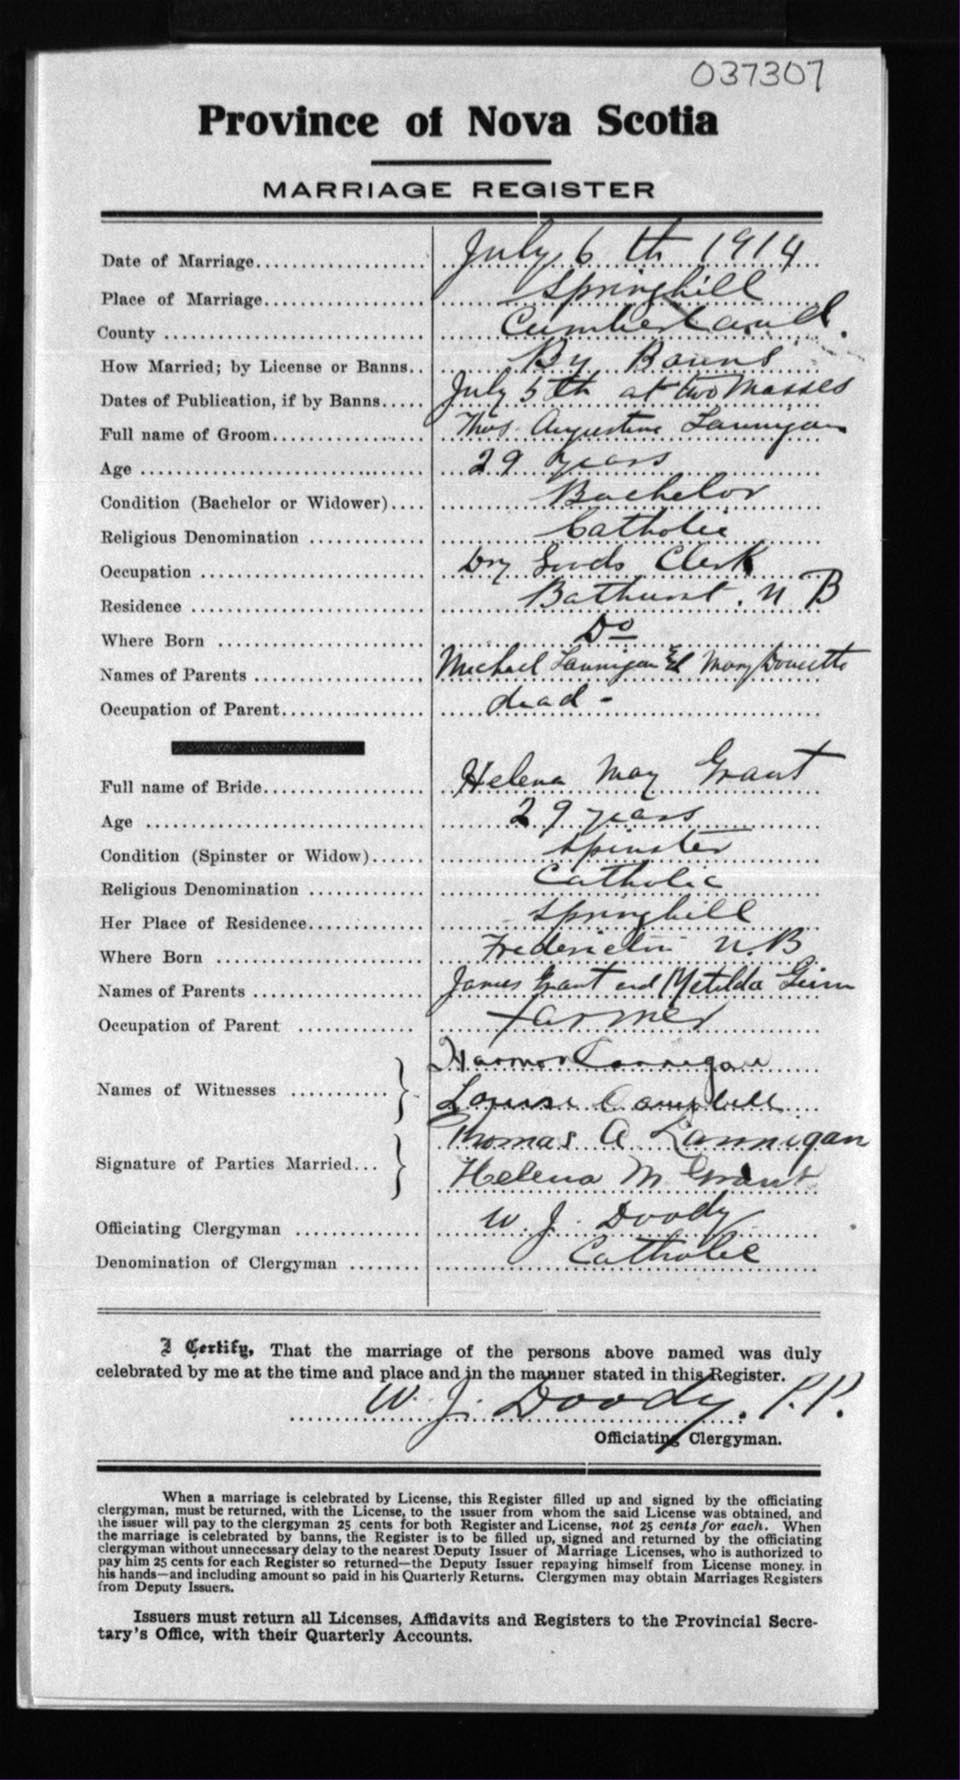 037307
Province of Nova Scotia
MARRIAGE REGISTER
Date of Marriage July 6th 1914
Place of Marriage Springhill
County Cumberland.
How Married; by License or Banns.. By Banns
Dates of Publication, if by Banns July 5th at two Masses
Full name of Groom Thos. Augustine Lannigan
Age 29 years
Condition (Bachelor or Widower) Bachelor
Religious Denomination Catholic
Occupation Dry Goods Clerk
Residence Bathurst. N B
Where Born Do
Names of Parents Michael Lannigan & Mary Doucette
Occupation of Parent dead -
Full name of Bride Helena May Grant
Age 29 years
Condition (Spinster or Widow) Spinster
Religious Denomination Catholic
Her Place of Residence Springhill
Where Born Fredericton N.B
Names of Parents James Grant and Metilda
Occupation of Parent Farmer
Lannigan
Names of Witnesses
Louise Campbell
Thomas A Lannigan
Signature of Parties Married...
Helena M Grant
Officiating Clergyman W. J. Doody
Denomination of Clergyman Catholic
I Certify, That the marriage of the persons above named was duly
celebrated by me at the time and place and in the manner stated in this Register.
W. J. Doody. P.P.
Officiating Clergyman.
When a marriage is celebrated by License, this Register filled up and signed by the officiating
clergyman, must be returned, with the License, to the issuer from whom the said License was obtained, and
the issuer will pay to the clergyman 25 cents for both Register and License, not 25 cents for each. When
the marriage is celebrated by banns, the Register is to be filled up, signed and returned by the officiating
clergyman without unnecessary delay to the nearest Deputy Issuer of Marriage Licenses, who is authorized to
pay him 25 cents for each Register so returned—the Deputy Issuer repaying himself from License money. in
his hands—and including amount so paid in his Quarterly Returns. Clergymen may obtain Marriages Registers
from Deputy Issuers.
Issuers must return all Licenses, Affidavits and Registers to the Provincial Secre-
tary's Office, with their Quarterly Accounts.